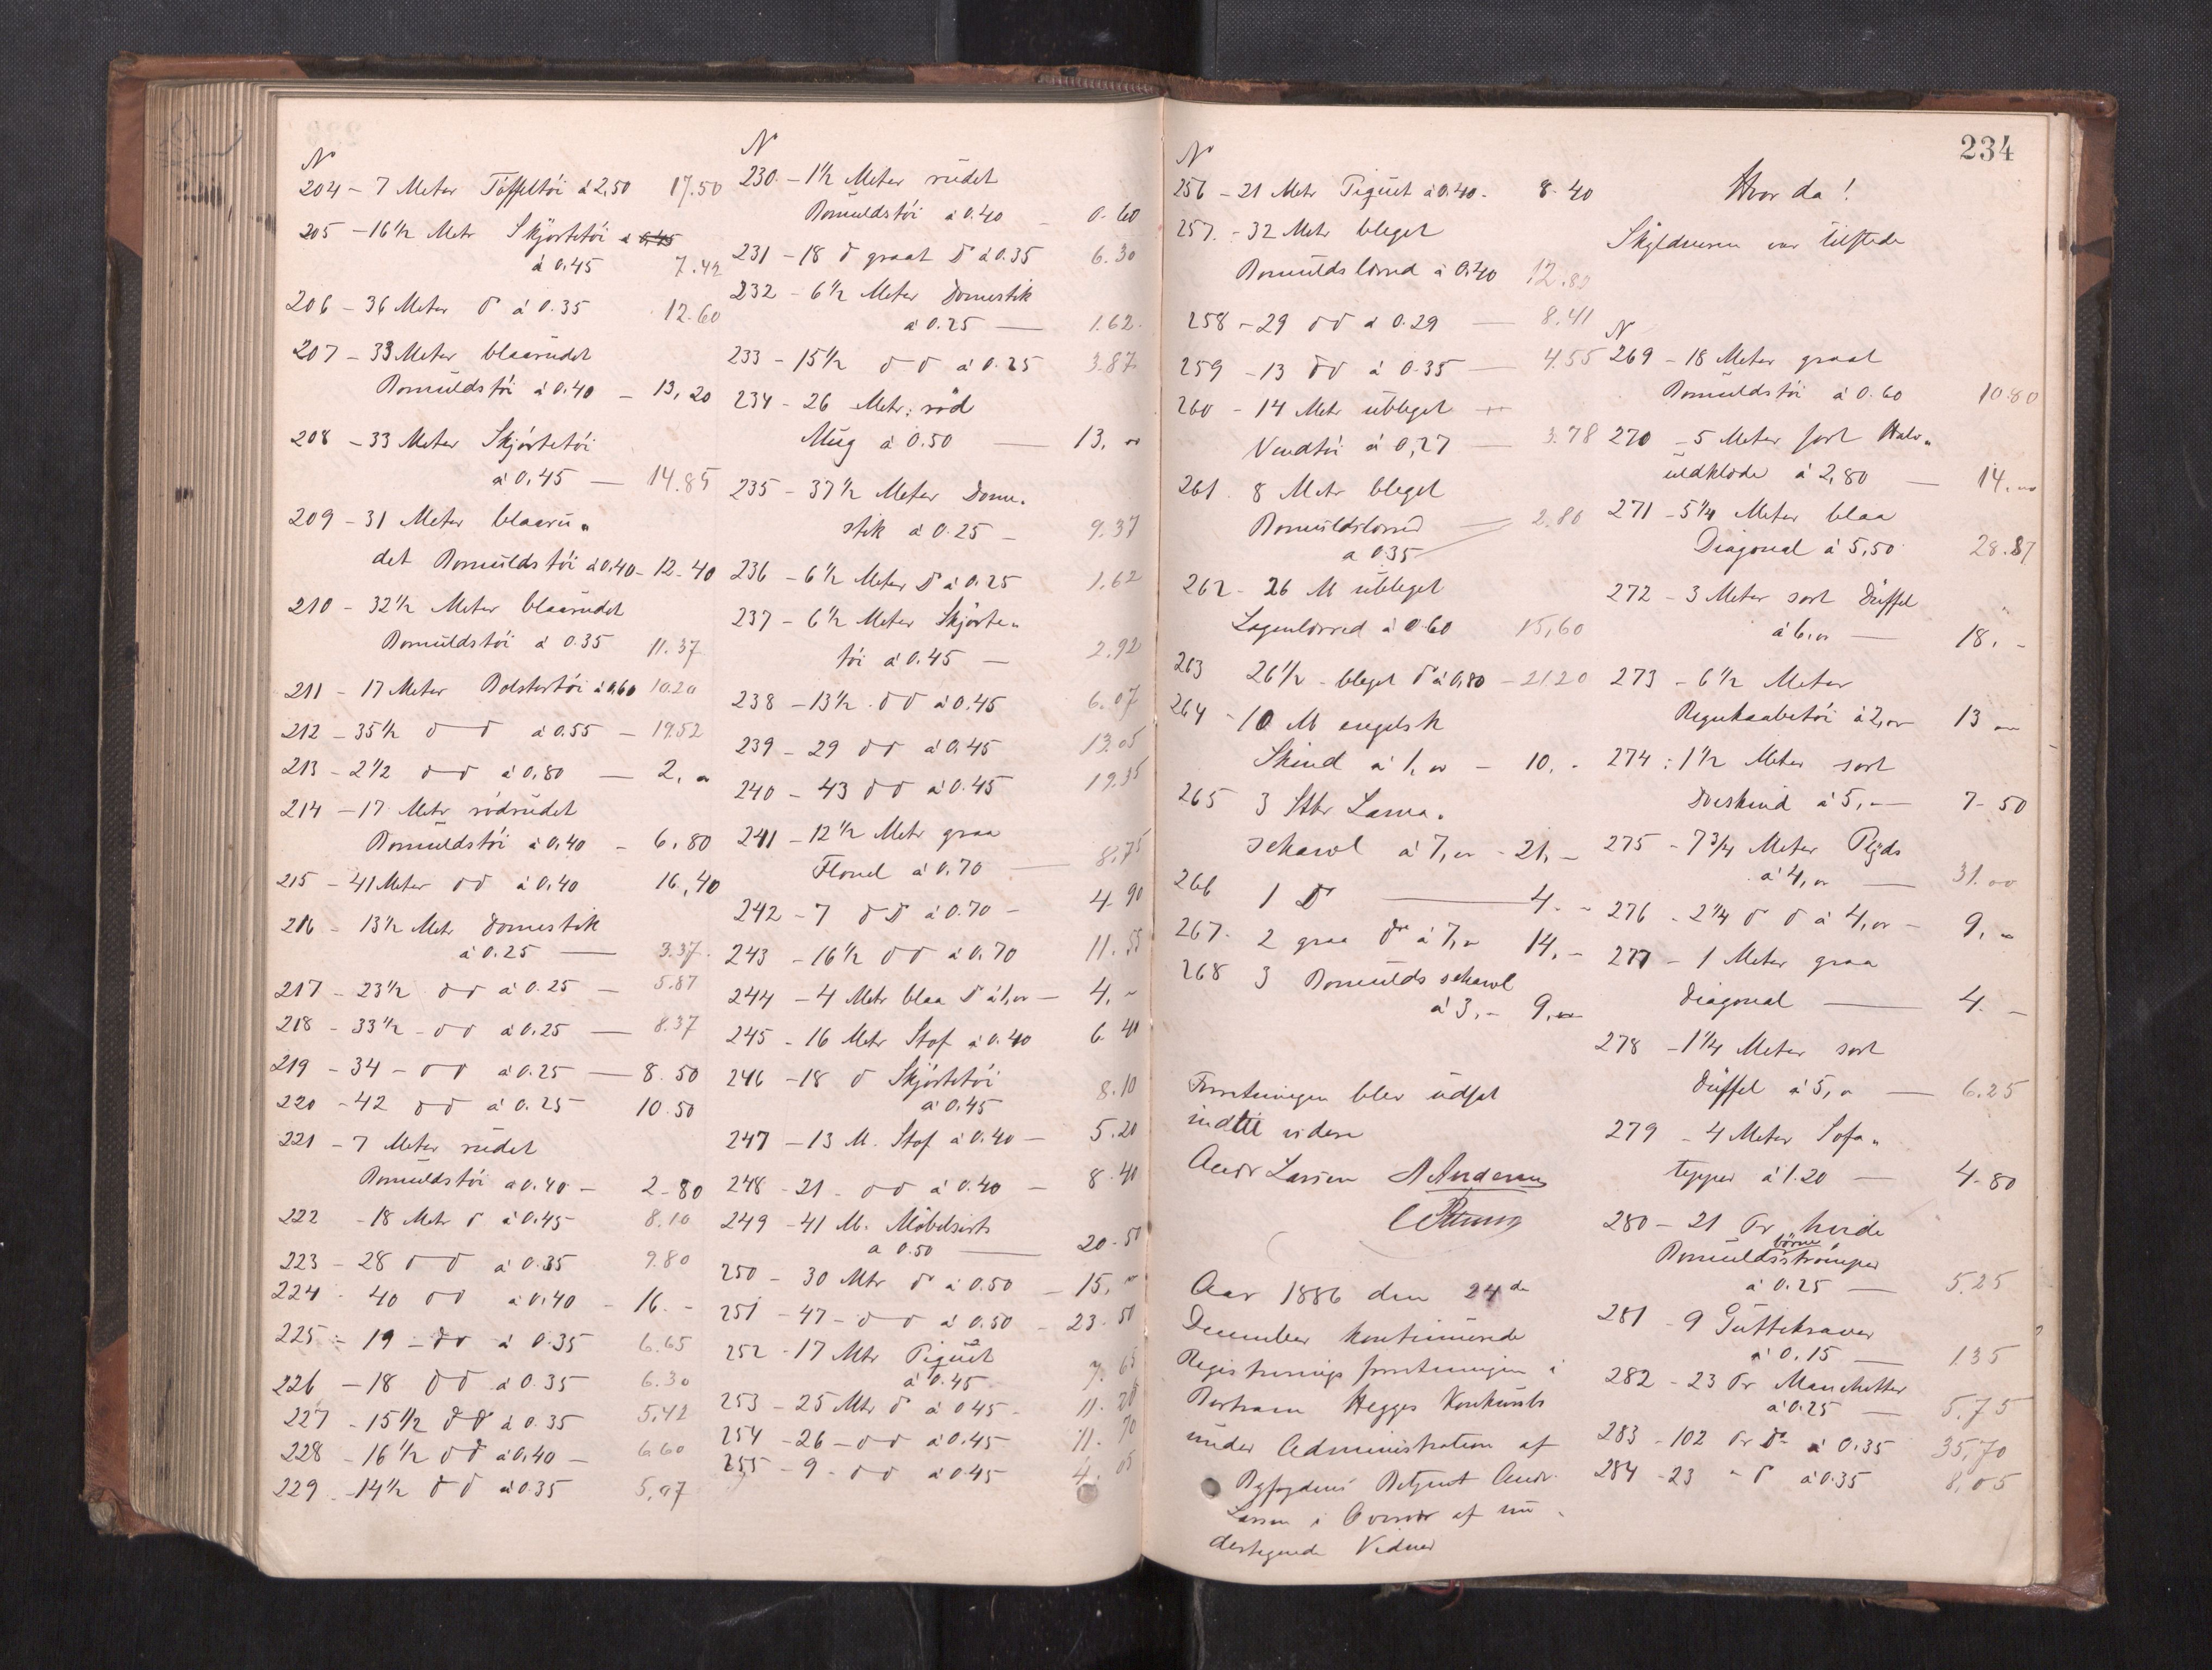 N
204 - 7 Meter Töffeltöi à 2,50 17.50
205 - 16 1/2 Metr Skjortetöi à 0,45
à 0.45 7.42
206 - 36 Meter do à 0.35 12.60
207 - 33 Meter blaarudet
Bomuldstöi à 0.40 - 13,20
208 - 33 Meter Skjörtetöi
à 0,45 — 14.85
209 - 31 Meter blaaru„
det Bomuldstöi à 0.40 - 12-40
210 - 32 1/2 Meter blaarudet
Bomuldstöi à 0.35 11.37
211 - 17 Meter Bolstertöi à 0,60 10.20
212 - 35 1/2 d d à 0.55 - 19.52
213 - 2 1/2 d d à 0,80 — 2. „
214 - 17 Metr rödrudet
Bomuldstöi à 0,40 - 6.80
215 - 41 Meter d d à 0,40 16,40
216 - 13 1/2 Metr Domestik
à 0.25 — 3.37
217 - 23 1/2 d d à 0.25 - 5.87
218 - 33 1/2 - d d à 0.25 — 8.37
219 - 34 - d d à 0.25 — 8.50
220 - 42 d d à 0.25 10.50
221 - 7 Meter rudet
Bomuldstöi a 0.40 - 2-80
222 - 18 Metr d à 0,45 8,10
223 - 28 d d à 0.35 9.80
224 - 40 d d à 0,40 - 16. -
225 - 19 - d d à 0.35 6.65
226 - 18 d d à 0.35 6.30
227 - 15 1/2 d d à 0.35 5,42
228 - 16 1/2 d d à 0,40 - 6.60
229 - 14 1/2 d d à 0.35 5,07
N
230 - 1 1/2 Meter rudet
Bomuldstöi à 0.40 - 0.60
231 - 18 d graat D à 0.35 6.30
232 - 6 1/2 Meter Domestik
à 0.25 — 1.62
233 - 15 1/2 d d à 0.25 3.87
234 - 26 Metr: röd
Mug à 0.50 — 13, „
235 - 37 1/2 Meter Dome„
stik à 0.25 - 9.37
236 - 6 1/2 Meter D à 0.25 1.62
237 - 6 1/2 Meter Skjorte„
töi à 0.45 — 2.92
238 - 13 1/2 d d à 0.45 6.07
239 - 29 d d à 0.45 13.05
240 - 43 d d à 0.45 19.35
241 - 12 1/2 Metr graa
Flonel à 0.70 — 8,75
242 - 7 d D à 0.70 - 4.90
243 - 16 1/2 d d à 0.70 11.55
244 - 4 Metr blaa D à 1,„ - 4. -
245 - 16 Metr Stof à 0.40 6.40
246 - 18 d Skjörtetöi
à 0.45 8.10
247 - 13 M. Stof à 0.40 - 5.20
248 - 21 - d d à 0.40 - 8.40
249 - 41 M. Möbelsirts
a 0.50 — 20-50
250 - 30 Mtr d à 0.50 - 15, „
251 - 47 - d d à 0.50 - 23.50
252 - 17 Mtr Piquet
à 0.45 7.65
253 - 25 Mtr d à 0.45 - 11.20
254 - 26 - d d à 0.45 11.70
255 - 9 - d d à 0.45 4.05
234
N
256 - 21 Metr Piquet à 0.40 - 8.40
257. - 32 Metr bleget
Bomuldslærred à 0.40 12.80
258 - 29 d d à 0.29 — 8.41
259 - 13 d d à 0.35 — 4.55
260 - 14 Metr ubleget
Vendtöi à 0,27 — 3.78
261. 8 Metr bleget
Bomuldslærred — 2.80
a 0.35
262 - 26 M ubleget
Lagenlærred à 0.60 15,60
263 26 1/2 - bleget d à 0,80 - 21.20
264 - 10 M engelsk
Skind à 1,„ - 10. -
265 3 Stkr Lama„
schawl à 7,„ - 21, -
266 1 D — 4. -
267. 2 graa do à 7,„ 14, -
268 3 Bomulds schawl
à 3, - 9, -
Forretningen blev udsat
indtil videre
Andr Larsen A Andersen
Aar 1886 den 24de
December kontinuerede
Registreringsforretningen i
Bertram Hegges Konkursbo
under Administration af
Byfogdens Betjent Andr.
Larsen i Overvær af un„
dertegnede Vidner
Hvor da!
Skyldneren var tilstede
N
269 - 18 Meter graat
Bomuldstöi à 0.60 10.80
270 - 5 Meter sort Halv„
uldklæde à 2,80 — 14. „
271 - 5 1/4 Meter blaa
Diagonal à 5,50 28.87
272 - 3 Meter sort Düffel
à 6,„ — 18. -
273 - 6 1/2 Meter
Regnkaabetöi à 2,„ 13 „
274 : 1 1/2 Meter sort
Doeskind à 5, - 7-50
275 - 7 3/4 Meter Plyds
à 4,„ — 31.00
276 - 2 1/4 d d à 4,„ - 9, „
277 - 1 Meter graa
Diagonal — 4. -
278 - 1 1/4 Meter sort
Düffel à 5,„ — 6.25
279 - 4 Meter Sofa„
tepper à 1.20 — 4.80
280 - 21 Pr hvide
börne
Bomuldsströmper
à 0.25 — 5.25
281 - 9 Guttekraver
à 0.15 — 1.35
282 - 23 Pr Manchetter
à 0.25 — 5,75
283 - 102 Pr D à 0.35 35,70
284 - 23 „ d à 0.35 8,05